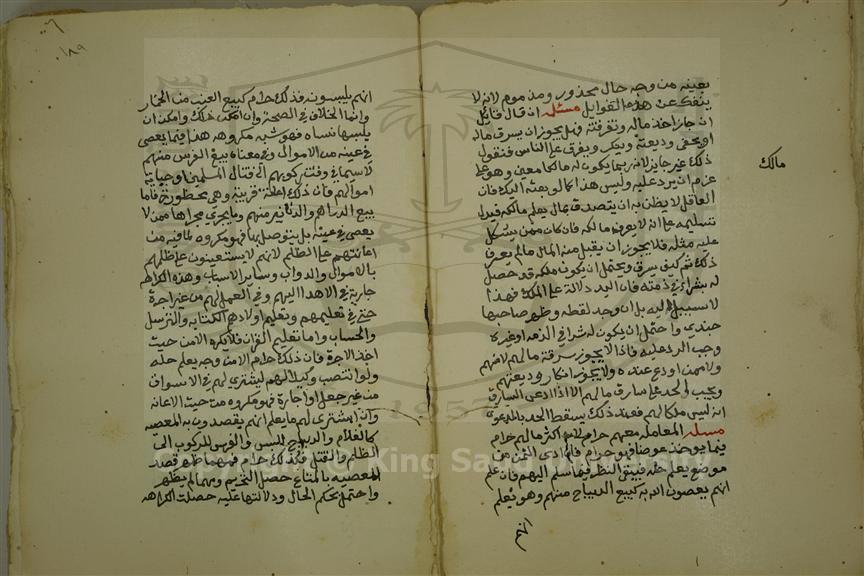 بعينه من وجه حال محذور ومذموم لانه لا
ينفك عن هذه الغوايل مسئلة ان قال قايل
ان جاز اخذ ماله وتفرقته فهل يجوز ان يسرق ماله
او يخفى وديعته وينكر ويفرق على الناس فنقول
ذلك غير جايز لانه ربما يكون له مالك معين وهو على
عزم ان يرد عليه وليس هذا كما لو بعثه اليك فان
العاقل لا يظن به ان يتصدق بمال يعلم مالكه فيدل
تسليمه على انه لا يعرف مالكه فان كان ممن يشكل
عليه مثله فلا يجوز ان يقبل منه المال مالم يعرف
ذلك ثم كيف يسرق ويحتمل ان يكون ملكه قد حصل
له بشراء في ذمته فان اليد دلالة على الملك فهذا
لا سبيل اليه بل ان وجد لقطة وظهر صاحبها
جندي واحتمل ان يكون له شرا في الذمه او غيره
وجب الرد عليه فاذا لا يجوز سرقة مالهم لا منهم
ولا ممن اودع عنده ولا يجوز انكار وديعتهم
ويجب الحد على سارق مالهم الا اذا ادعى السارق
انه ليس ملكا لهم فعند ذلك يسقط الحد بالدعوى
مسله المعامله معهم حرام لان اكثر مالهم حرام
فيما يوخذ عوضا فهو حرام فان ادى الثمن من
موضع يعلم حله فيبقى النظر فيما سلم اليهم فان علم
انهم يعصون الله به كبيع الديباج منهم وهو يعلم
انهم
مالك
١٨٩
انهم يلبسونه فذلك حرام كبيع العنب من الخمار
وانما الخلاف في الصحة وان امكن ذلك وامكن ان
يلبسها نساه فهو شبه مكروهه هذا فيما يعصى
في عينه من الاموال وفي معناه بيع الفرس منهم
لا سيما في وقت ركوبهم الى قتال المسلمين او جباية
اموالهم فان ذلك اعانة بفرسه وهي محظورة فاما
بيع الدراهم والدنانير منهم وما يجري مجراها مما لا
يعصى في عينه بل يتوصل بها فهو مكروه لما فيه من
اعانتهم على الظلم لانهم لا يستعينون على ظلمهم
بالاموال والدواب وساير الاسباب وهذه الكراهه
جارية في الاهدا اليهم وفي العمل لهم من غير اجرة
حتى في تعليمهم وتعليم اولادهم الكتابه والترسل
والحساب واما تعليم القران فلا يكره الا من حيث
اخذ الاجرة فان ذلك حرام الا من وجه يعلم حله
ولو انتصب وكيلا لهم ليشترى لهم في الاسواق
من غير جعل او اجارة فهو مكروه من حيث الاعانه
وان اشترى لهم ما يعلم انهم يقصدون به المعصيه
كالغلام والديباج للبس والفرس للركوب الى
الظلم والقتل فكذلك حرام فمهما ظهر قصد
المعصيه بالمتاع حصل التحريم ومهما لم يظهر
واحتمل بحكم الحال ودلالتها عليه حصلت الكراهه
Copyright © King Saud University
1957